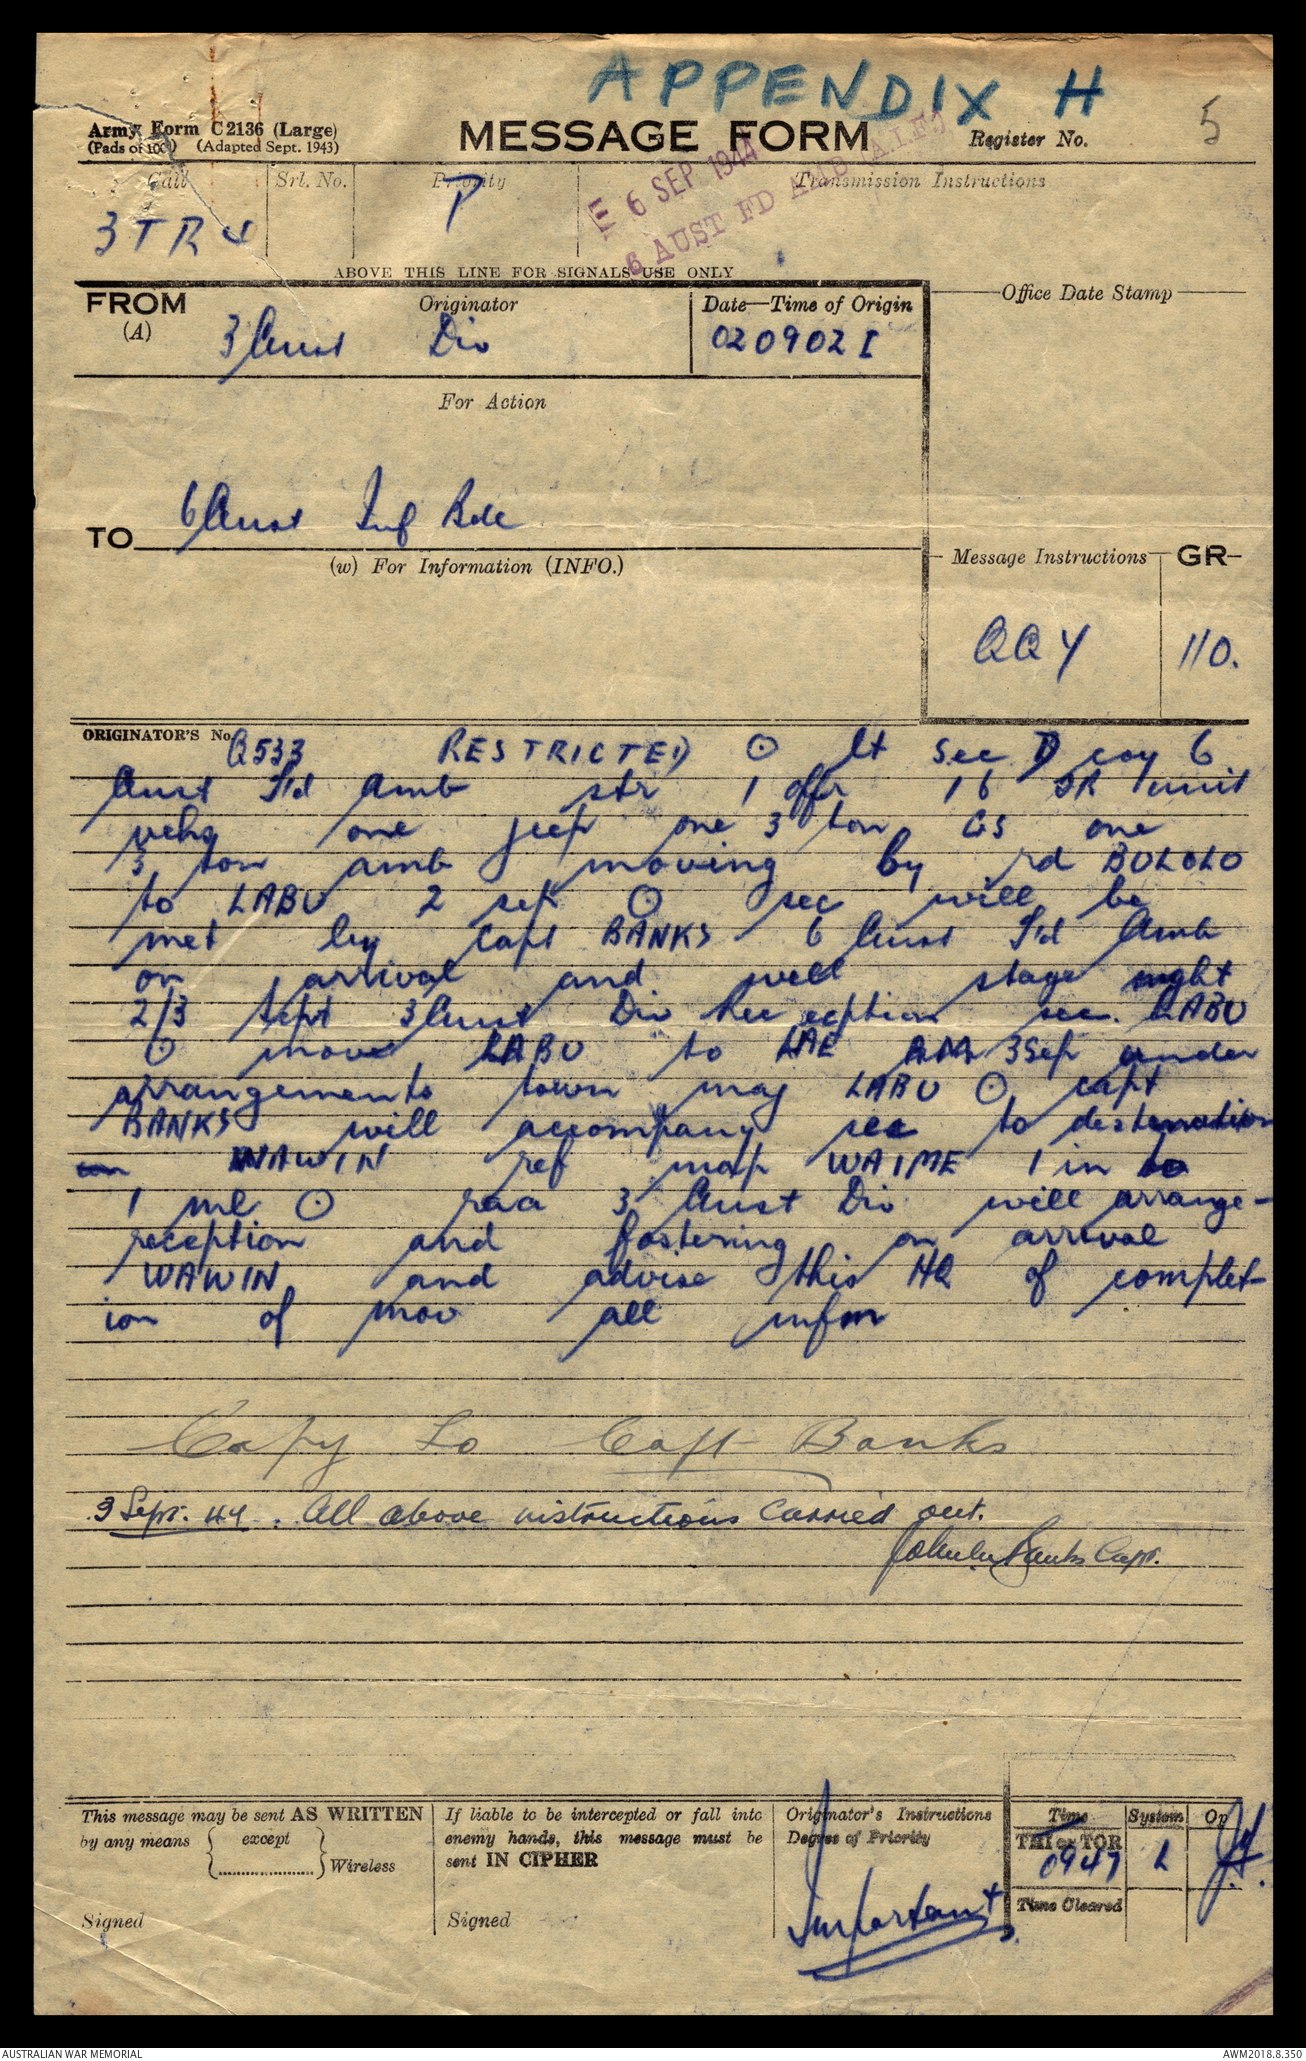 APPENDIX H
5
Army Form C2136 (Large)
(Pads of 100) (Adapted Sept. 1943)
MESSAGE FORM
Register No.
Call
Srl. No.
Priority
Transmission Instructions
3TR4
P
6 SEP 1944
6 AUST FD AMB (A.I.F.)
ABOVE THIS LINE FOR SIGNALS USE ONLY
FROM
(A)
Originator
Date—Time of Origin
Office Date Stamp
3 Aust Div
020902 I
For Action
6 Aust Inf Bde
TO
(w) For Information (INFO.)
Message Instructions
GR
QQY
110.
ORIGINATOR'S No.
Q533 RESTRICTED ⊙ lt sec D coy 6
Aust Fd Amb str 1 offr 16 OR unit
vehs one jeep one 3 ton GS one
3 ton amb moving by rd BULOLO
to LABU 2 sep ⊙ sec will be
met by Capt BANKS 6 Aust Fd Amb
on arrival and will stage night
2/3 Sept 3 Aust Div Reception sec. LABU
⊙ move LABU to LAE AM 3 Sep under
arrangements town maj LABU ⊙ capt
BANKS will accompany sec to destination
WAWIN ref map WAIME 1 in to
1 ml ⊙ raa 3 Aust Div will arrange-
reception and fostering on arrival
WAWIN and advise this HQ of complet-
ion of mov all infm
Copy to Capt Banks
3 Sept. 44. All above instructions carried out.
Banks Capt.
This message may be sent AS WRITTEN
by any means except Wireless
Signed
If liable to be intercepted or fall into
enemy hands, this message must be
sent IN CIPHER
Signed
Originator's Instructions
Degree of Priority
Important
Time
THI or TOR
0947
Time Cleared
System
L
Op
AUSTRALIAN WAR MEMORIAL
AWM2018.8.350